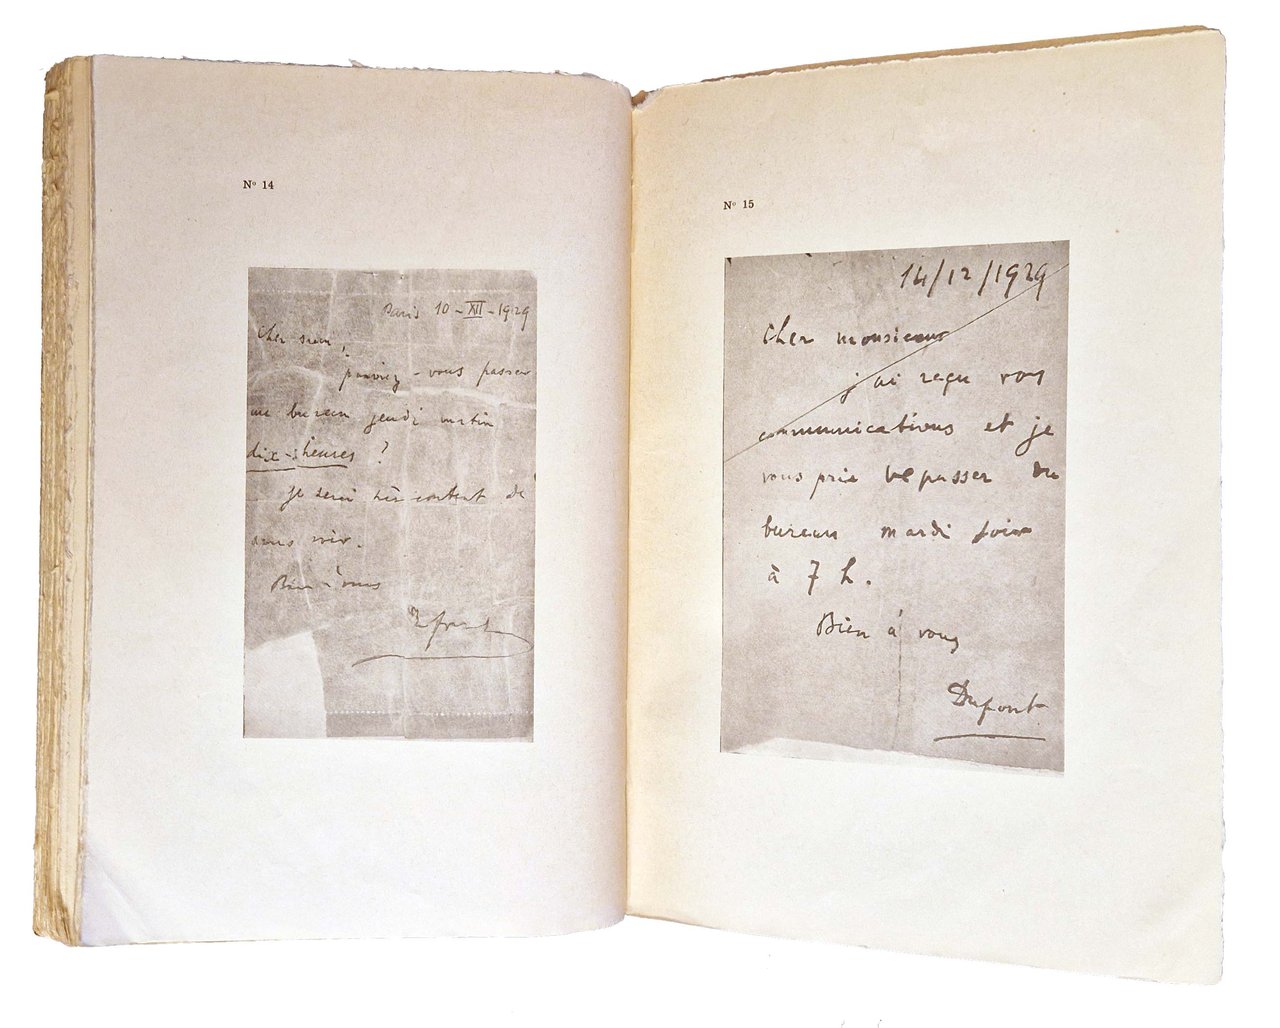 Nº 14
Paris 10-XII-1929
Cher
pourriez-vous passer
au bureau jeudi matin
dix-heures ?
je serai très content de
vous voir.
Bien à vous
Nº 15
14/12/1929
Cher monsieur
j'ai reçu vos
communications et je
vous prie de passer au
bureau mardi soir
à 7 h.
Bien à vous
Dupont